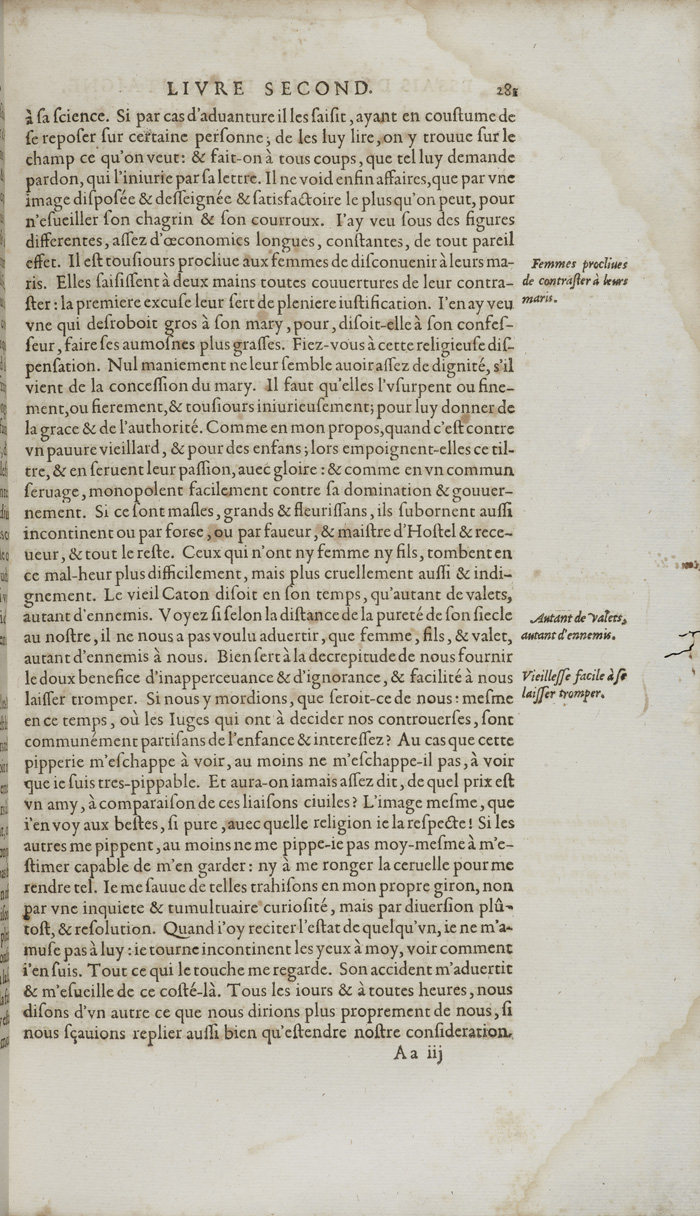 LIVRE SECOND. 281
à sa science. Si par cas d'aduanture il les saisit, ayant en coustume de
se reposer sur certaine personne, de les luy lire, on y trouue sur le
champ ce qu'on veut: & fait-on à tous coups, que tel luy demande
pardon, qui l'iniurie par sa lettre. Il ne void enfin affaires, que par vne
image disposée & desseignée & satisfactoire le plus qu'on peut, pour
n'esueiller son chagrin & son courroux. I'ay veu sous des figures
differentes, assez d'œconomies longues, constantes, de tout pareil
effet. Il est tousiours procliue aux femmes de disconuenir à leurs ma-
ris. Elles saisissent à deux mains toutes couuertures de leur contra-
ster: la premiere excuse leur sert de pleniere iustification. I'en ay veu
vne qui desroboit gros à son mary, pour, disoit-elle à son confes-
seur, faire ses aumosnes plus grasses. Fiez-vous à cette religieuse dis-
pensation. Nul maniement ne leur semble auoir assez de dignité, s'il
vient de la concession du mary. Il faut qu'elles l'vsurpent ou fine-
ment, ou fierement, & tousiours iniurieusement; pour luy donner de
la grace & de l'authorité. Comme en mon propos, quand c'est contre
vn pauure vieillard, & pour des enfans; lors empoignent-elles ce til-
tre, & en seruent leur passion, auec gloire: & comme en vn commun
seruage, monopolent facilement contre sa domination & gouuer-
nement. Si ce sont masles, grands & fleurissans, ils subornent aussi
incontinent ou par force, ou par faueur, & maistre d'Hostel & rece-
ueur, & tout le reste. Ceux qui n'ont ny femme ny fils, tombent en
ce mal-heur plus difficilement, mais plus cruellement aussi & indi-
gnement. Le vieil Caton disoit en son temps, qu'autant de valets,
autant d'ennemis. Voyez si selon la distance de la pureté de son siecle
au nostre, il ne nous a pas voulu aduertir, que femme, fils, & valet,
autant d'ennemis à nous. Bien sert à la decrepitude de nous fournir
le doux benefice d'inapperceuance & d'ignorance, & facilité à nous
laisser tromper. Si nous y mordions, que seroit-ce de nous: mesme
en ce temps, où les Iuges qui ont à decider nos controuerses, sont
communément partisans de l'enfance & interessez? Au cas que cette
pipperie m'eschappe à voir, au moins ne m'eschappe-il pas, à voir
que ie suis tres-pippable. Et aura-on iamais assez dit, de quel prix est
vn amy, à comparaison de ces liaisons ciuiles? L'image mesme, que
i'en voy aux bestes, si pure, auec quelle religion ie la respecte! Si les
autres me pippent, au moins ne me pippe-ie pas moy-mesme à m'e-
stimer capable de m'en garder: ny à me ronger la ceruelle pour me
rendre tel. Ie me sauue de telles trahisons en mon propre giron, non
par vne inquiete & tumultuaire curiosité, mais par diuersion plû-
tost, & resolution. Quand i'oy reciter l'estat de quelqu'vn, ie ne m'a-
muse pas à luy: ie tourne incontinent les yeux à moy, voir comment
i'en suis. Tout ce qui le touche me regarde. Son accident m'aduertit
& m'esueille de ce costé-là. Tous les iours & à toutes heures, nous
disons d'vn autre ce que nous dirions plus proprement de nous, si
nous sçauions replier aussi bien qu'estendre nostre consideration.
Aa iij
Femmes procliues
de contraster à leurs
maris.
Autant de valets,
autant d'ennemis.
Vieillesse facile à se
laisser tromper.